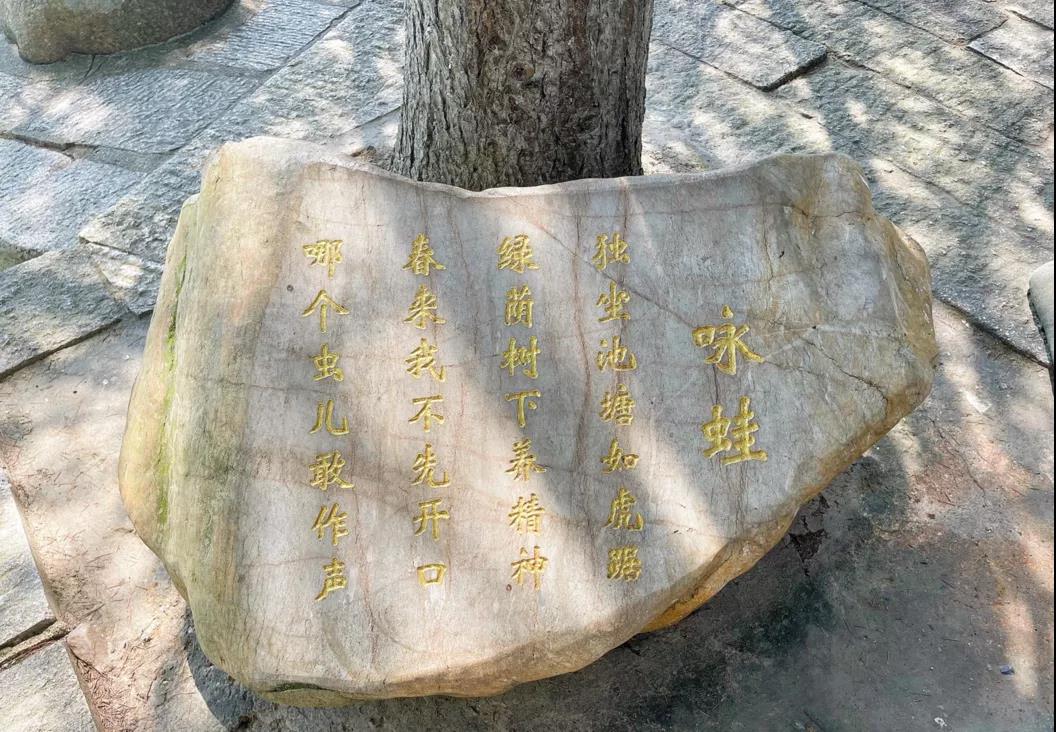 咏蛙
独坐池塘如虎踞
绿荫树下养精神
春来我不先开口
哪个虫儿敢作声